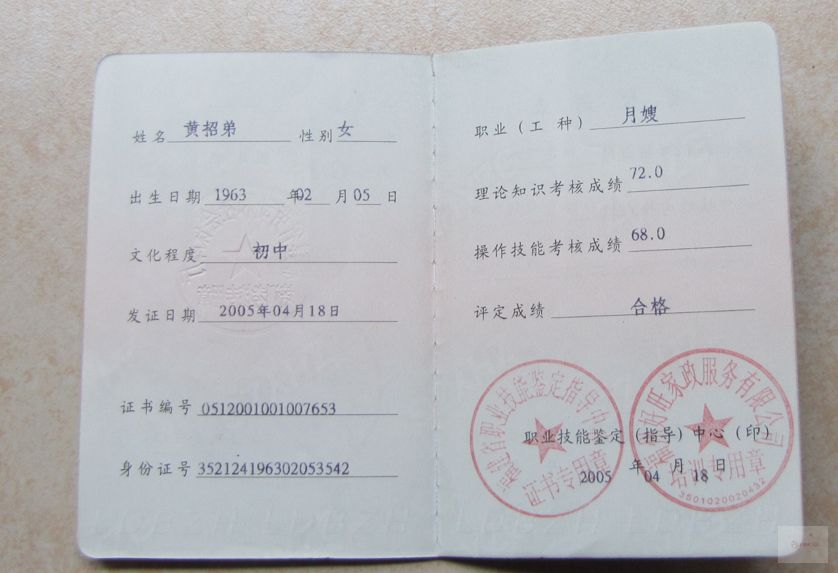 姓名 黄招弟 性别 女
出生日期 1963 年 02 月 05 日
文化程度 初中
发证日期 2005年04月18日
证书编号 0512001001007653
身份证号 352124196302053542
职业（工 种） 月嫂
理论知识考核成绩 72.0
操作技能考核成绩 68.0
评定成绩 合格
福建省职业技能鉴定指导中心
证书专用章
好旺家政服务有限公司
培训专用章
3501020020432
职业技能鉴定（指导）中心（印）
2005 年 04 月 18 日